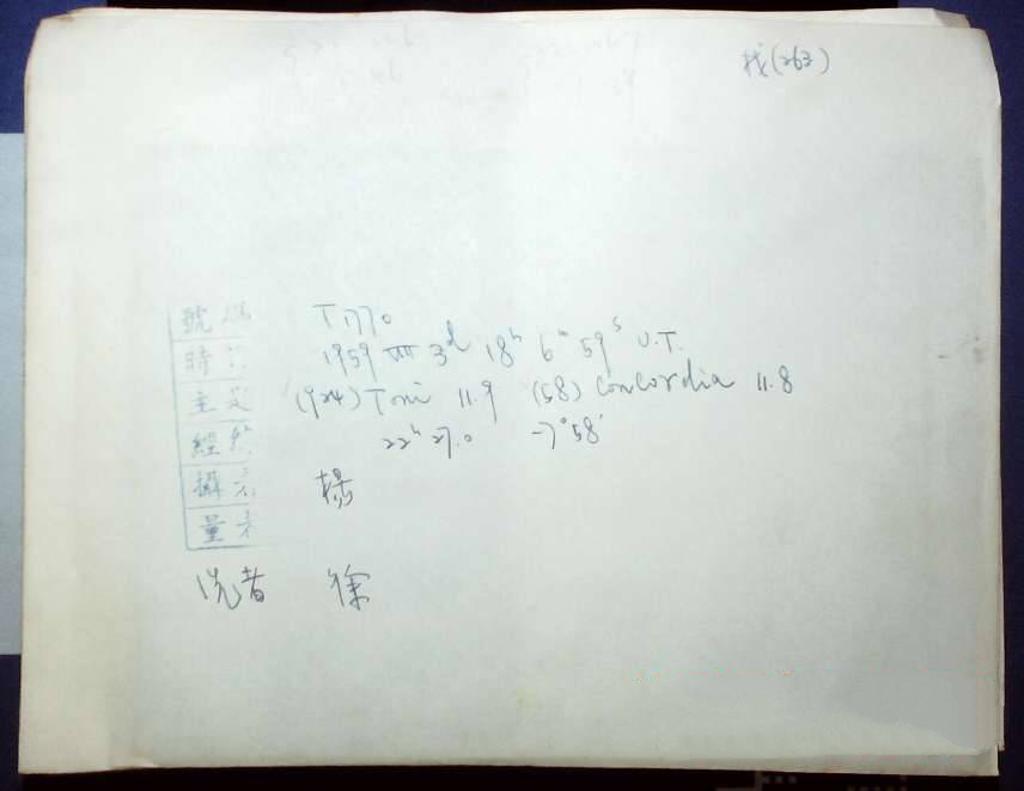 找(263)
號 T1770
時 1959 VIII 3d 18h 6m 59s U.T.
主 (924) Toni 11.9 (58) Concordia 11.8
經 22h 27.0 -7°58'
攝 楊
量
洗者 徐